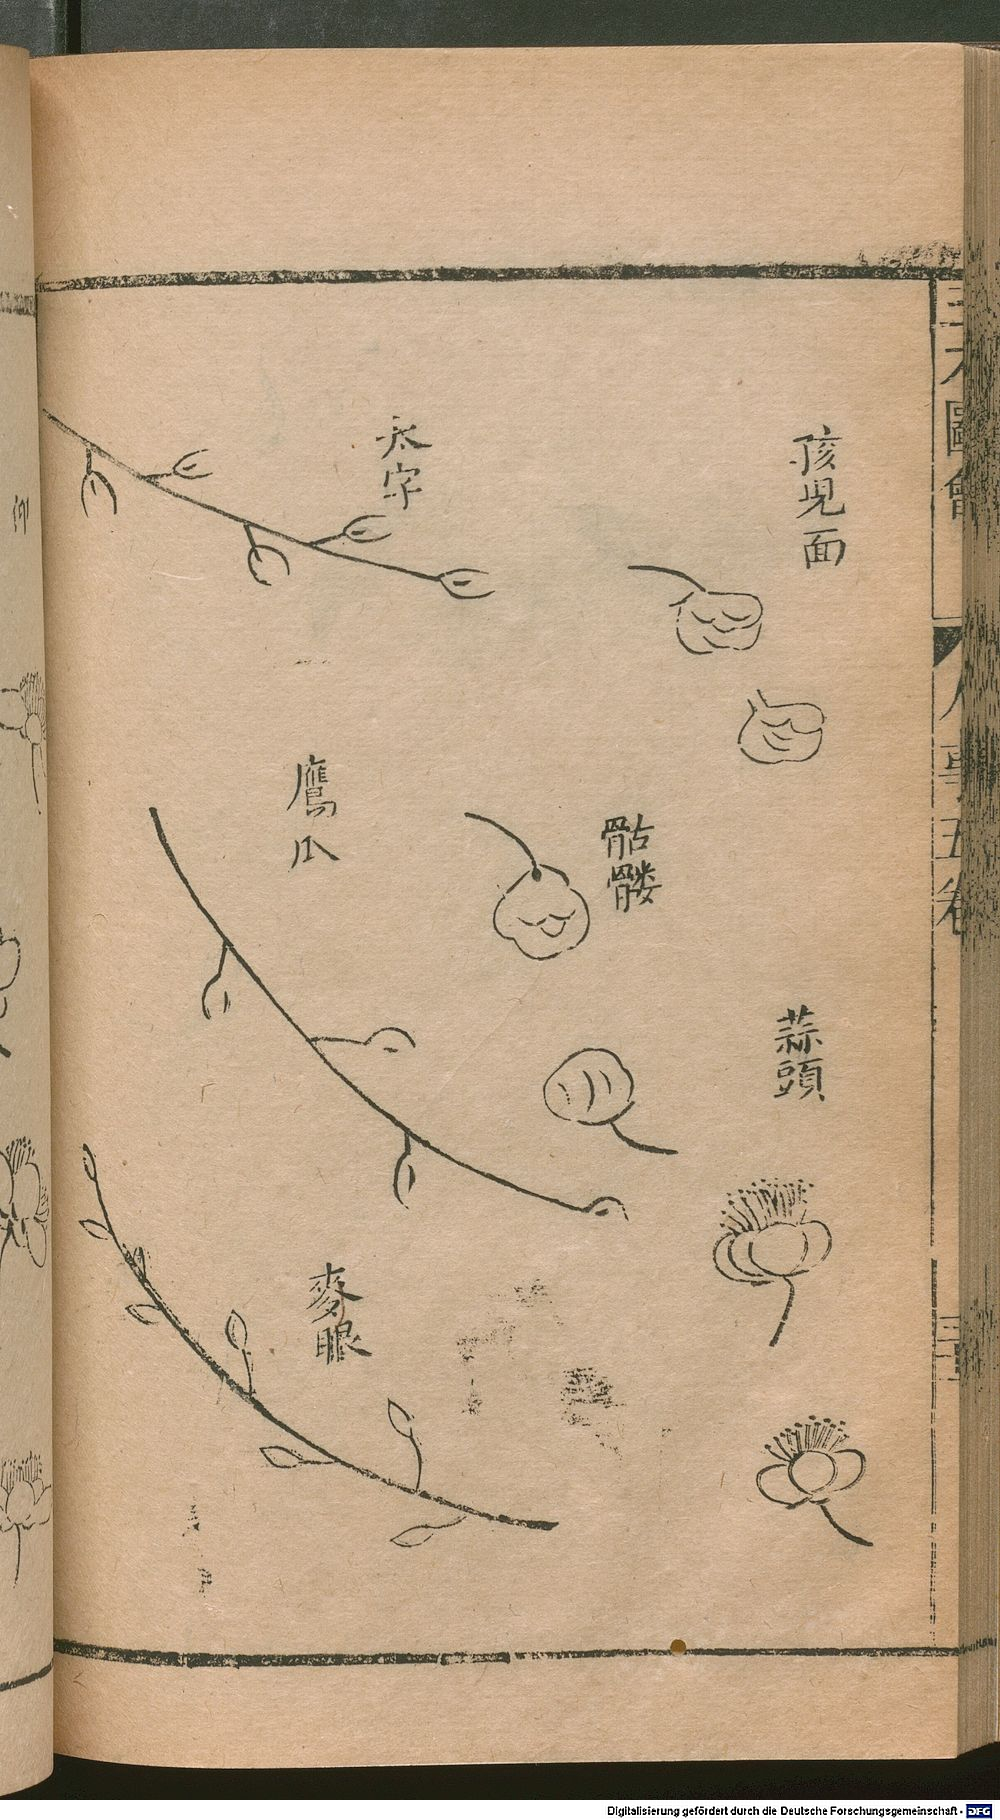 孩児面
骷髏
蒜頭
太字
鷹瓜
麥眼
圖會
五卷
Digitalisierung gefördert durch die Deutsche Forschungsgemeinschaft - DFG